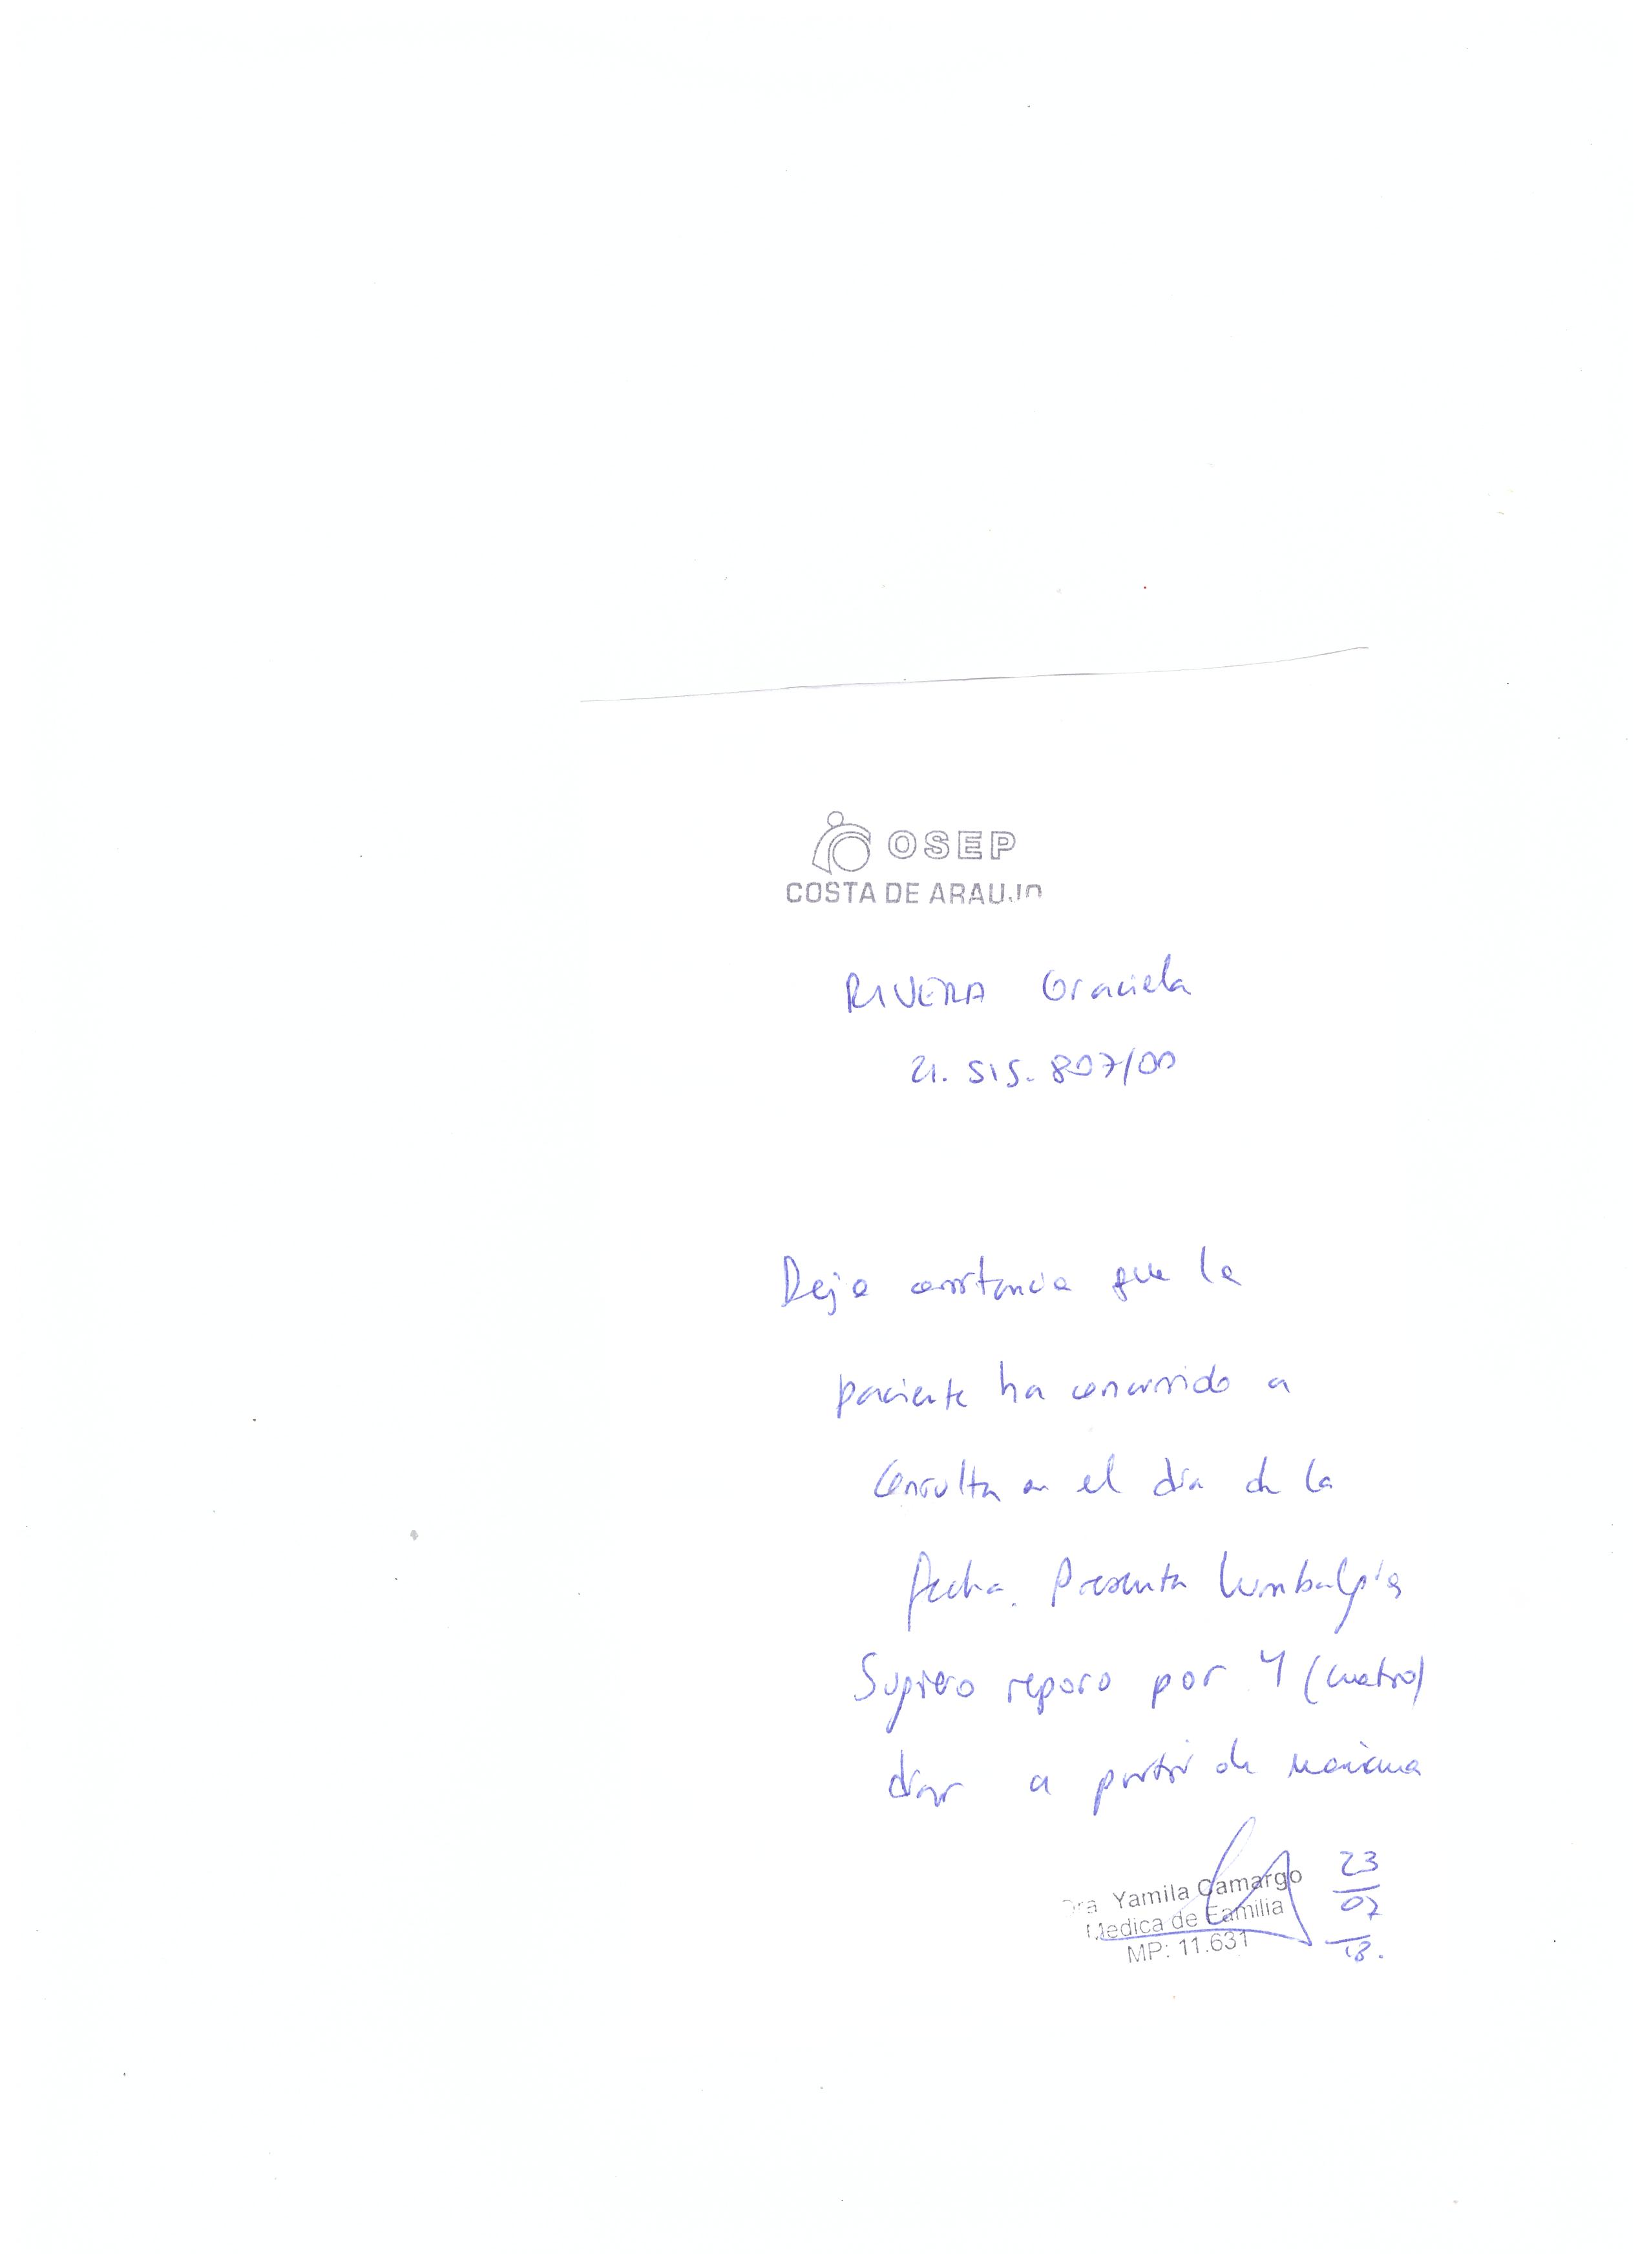 OSEP
COSTA DE ARAUJO
RIVERA Graciela
21.515.807/00
Dejo constancia que la
paciente ha concurrido a
consulta en el día de la
fecha. Presenta lumbalgia
Sugiero reposo por 4 (cuatro)
días a partir de mañana
Dra Yamila Camargo
Medica de Familia
MP: 11.631
23
07
18.